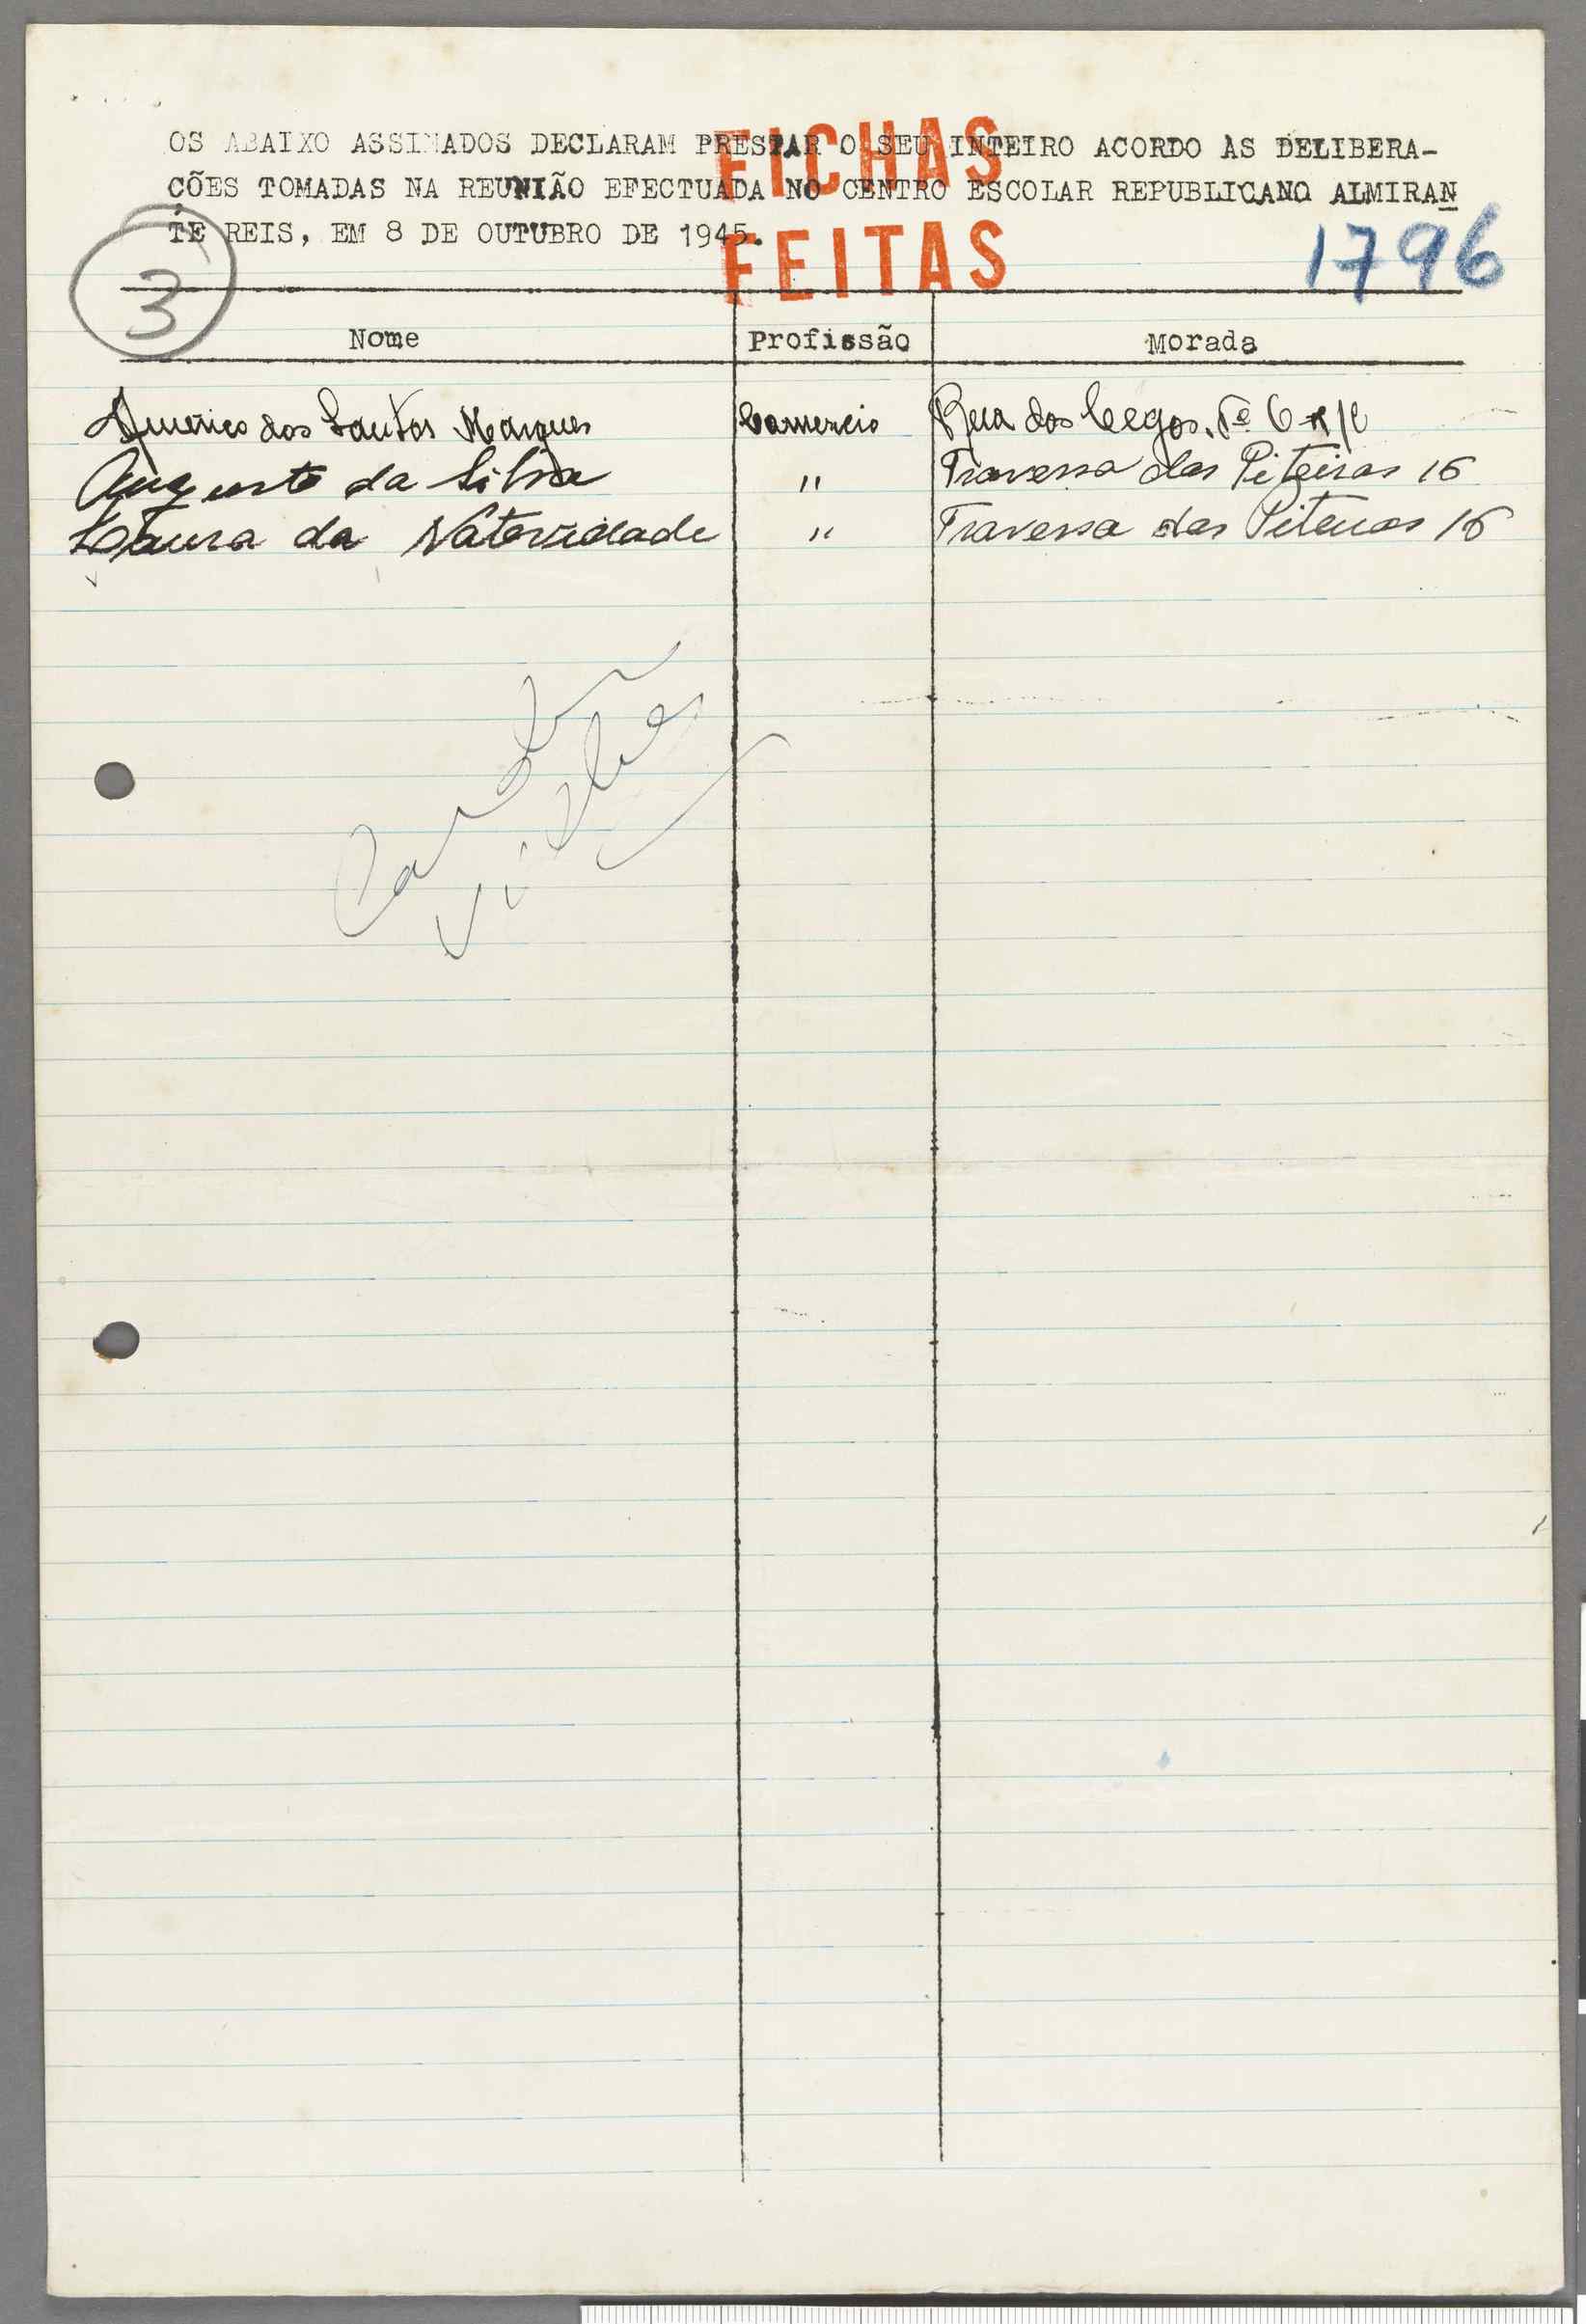 OS ABAIXO ASSINADOS DECLARAM PRESTAR O SEU INTEIRO ACORDO ÀS DELIBERA-
ÇÕES TOMADAS NA REUNIÃO EFECTUADA NO CENTRO ESCOLAR REPUBLICANO ALMIRAN
TE REIS, EM 8 DE OUTUBRO DE 1945.
FICHAS
FEITAS
1796
3
Nome Profissão Morada
Americo dos Santos Marques Comercio Rua dos Cegos, Nº 6 R/C
Augusto da Silva " Travessa das Piteiras 16
Laura da Natevidade " Travessa das Piteiras 16